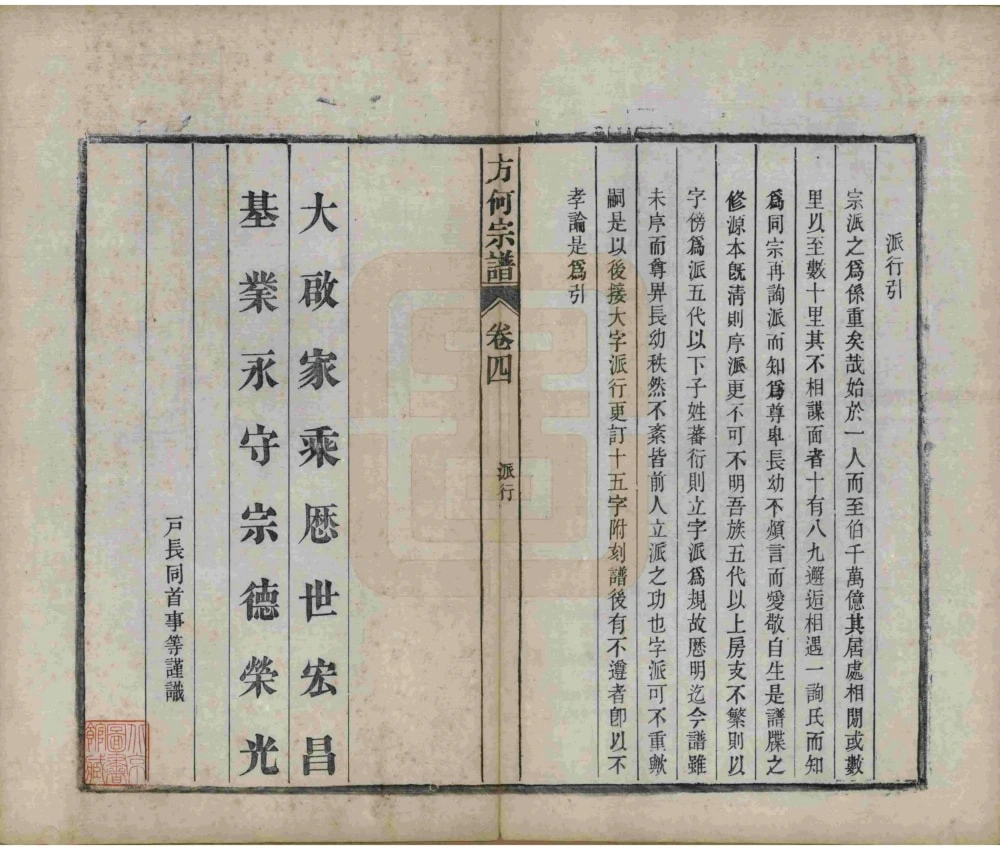 派行引
宗派之爲係重矣哉始於一人而至伯千萬億其居處相閒或數
里以至數十里其不相謀面者十有八九邂逅相遇一詢氏而知
爲同宗再詢派而知爲尊卑長幼不煩言而愛敬自生是譜牒之
修源本旣清則序派更不可不明吾族五代以上房支不繁則以
字傍爲派五代以下子姓蕃衍則立字派爲規故歷明迄今譜雖
未序而尊畀長幼秩然不紊皆前人立派之功也字派可不重歟
嗣是以後接大字派行更訂十五字附刻譜後有不遵者卽以不
孝論是爲引
方何宗譜
卷四
派行
大啟家乘歷世宏昌
基業永守宗德榮光
戸長同首事等謹識